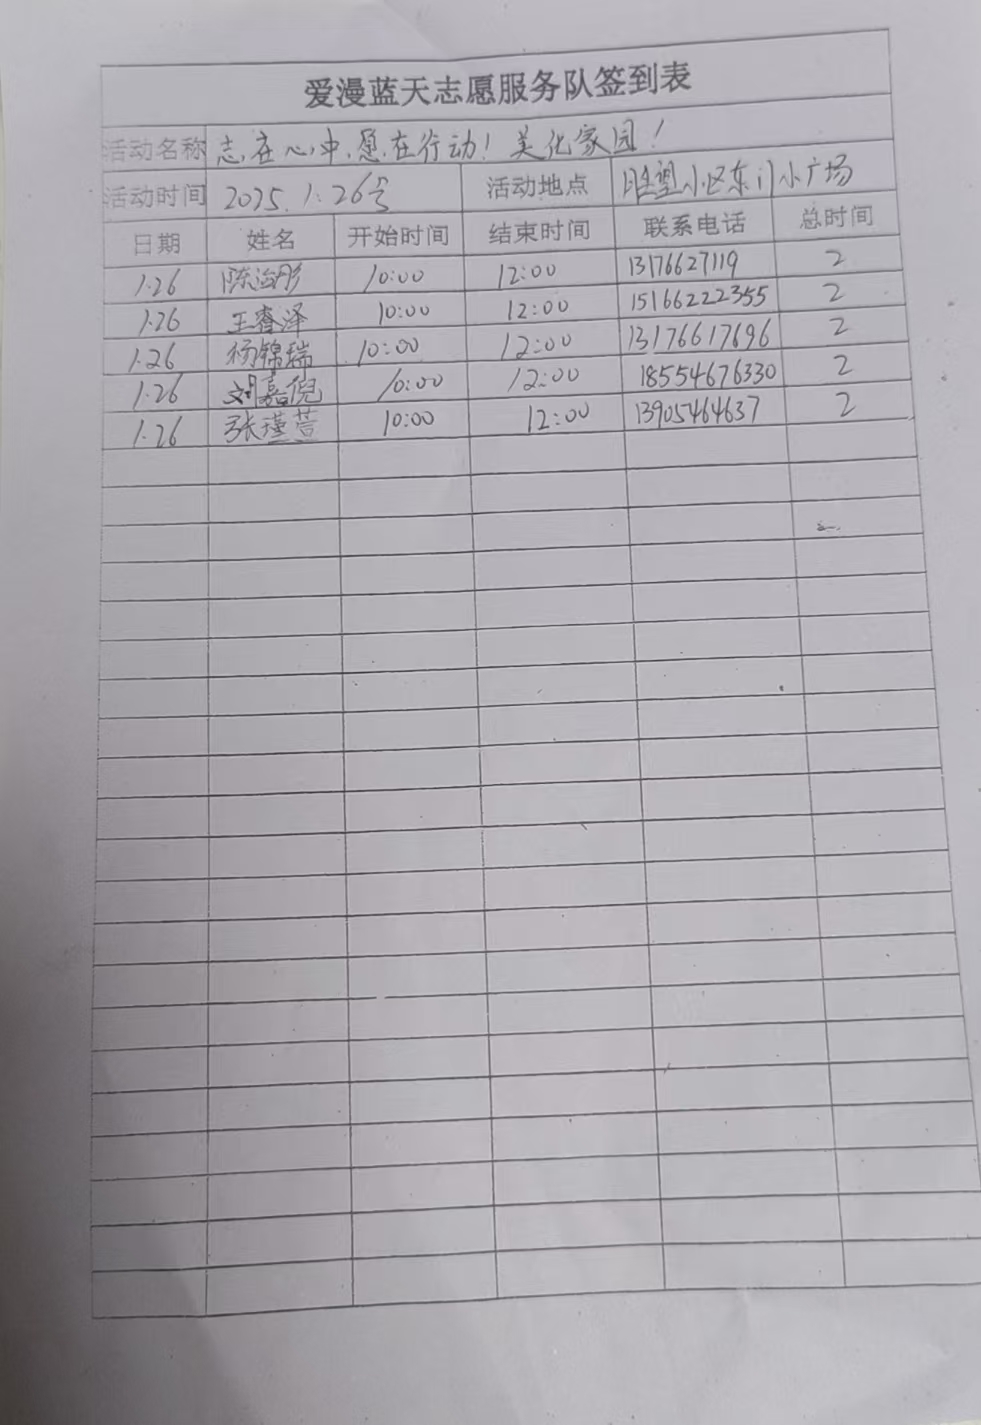 爱漫蓝天志愿服务队签到表
活动名称 志在心中,愿在行动!美化家园!
活动时间 2025.1.26号 活动地点 胜望小区东门小广场
日期 姓名 开始时间 结束时间 联系电话 总时间
1.26 陈治彤 10:00 12:00 13176627119 2
1.26 王睿泽 10:00 12:00 15166222355 2
1.26 杨锦瑞 10:00 12:00 13176617696 2
1.26 刘嘉倪 10:00 12:00 18554676330 2
1.26 张瑾萱 10:00 12:00 13905464637 2